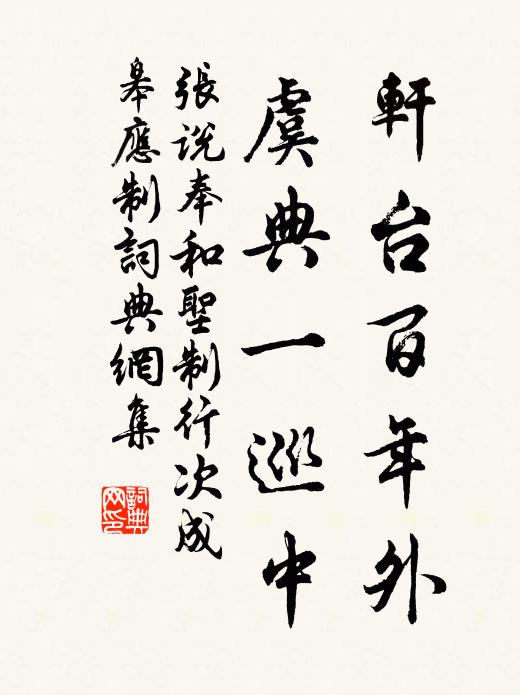 軒台百年外
虞典一巡中
張說奉和聖制行次成
皋應制詞典網集
詞典
网印